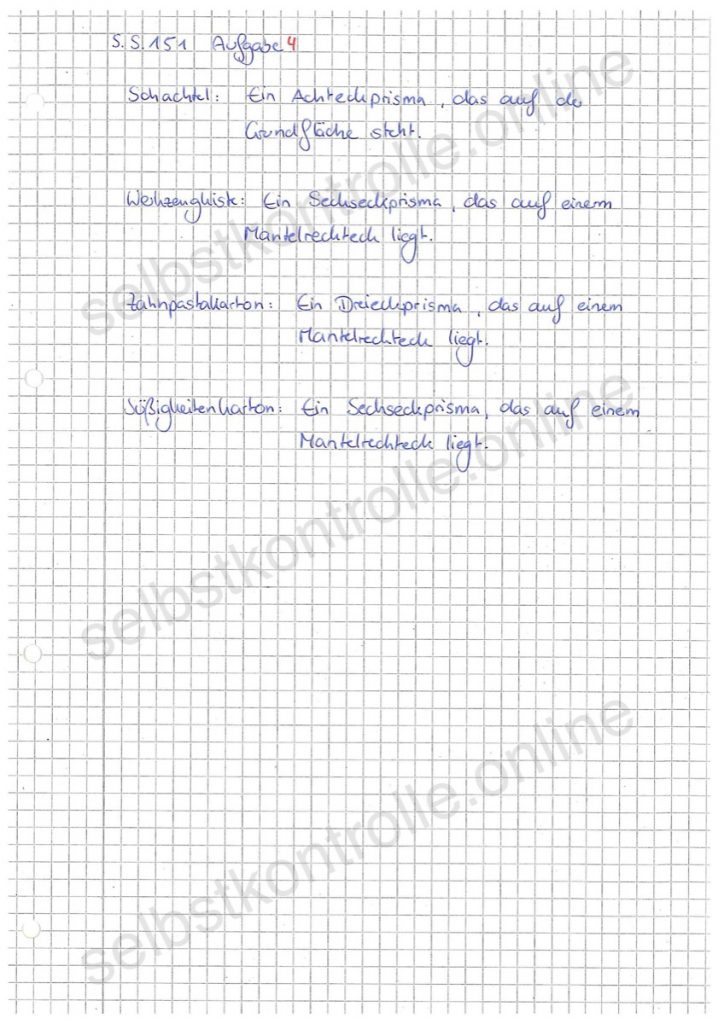 S. S. 151 Aufgabe 4
Schachtel: Ein Achteckprisma, das auf de
Grundfläche steht.
Werkzeugkiste: Ein Sechseckprisma, das auf einem
Mantelrechteck liegt.
Zahnpastakarton: Ein Dreieckprisma, das auf einem
Mantelrechteck liegt.
Süßigkeitenkarton: Ein Sechseckprisma, das auf einem
Mantelrechteck liegt.
selbstkontrolle.online
selbstkontrolle.online
selbstkontrolle.online